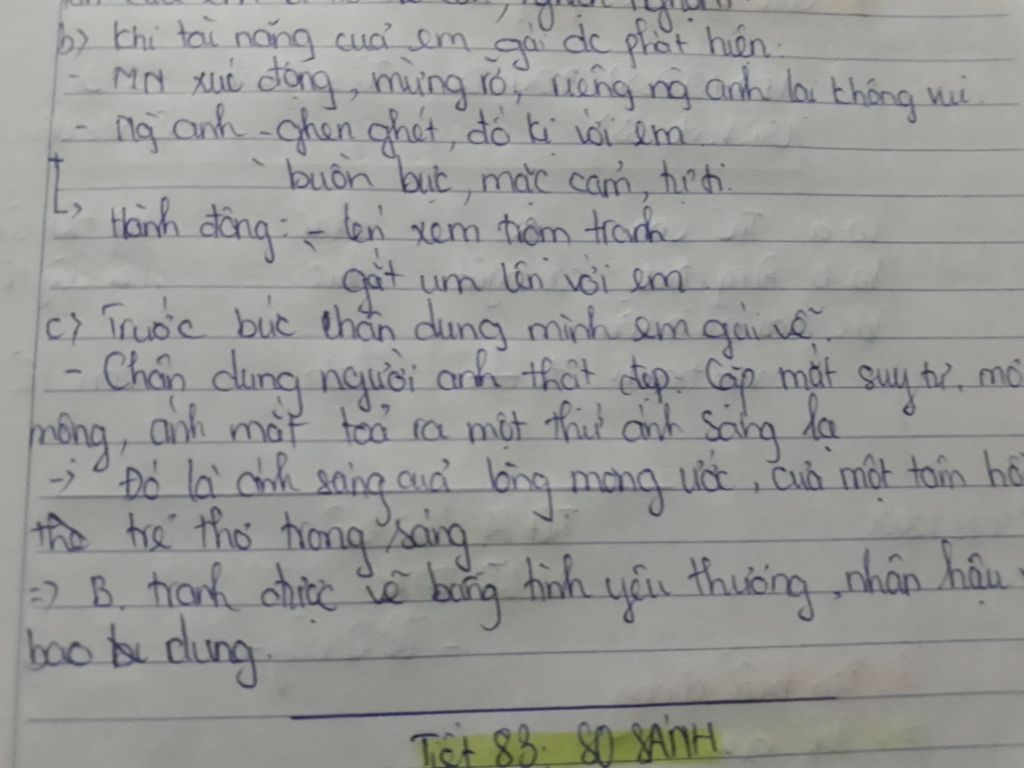 b) Khi tài năng của em gái đc phát hiện.
- MN xúc động, mừng rỡ, riêng ng anh lại không vui.
- Ng anh - ghen ghét, đố kị với em
buồn bực, mặc cảm, tự ti.
Hành động: - lén xem trộm tranh
gắt um lên với em
c) Trước bức chân dung mình em gái vẽ.
- Chân dung người anh thật đẹp. Cặp mắt suy tư, mơ
mộng, ánh mắt toả ra một thứ ánh sáng lạ
-> Đó là ánh sáng của lòng mong ước, của một tâm hồ
trẻ thơ trong sáng
=> B. tranh được vẽ bằng tình yêu thương, nhân hậu
bao dung.
Tiết 83. SO SÁNH